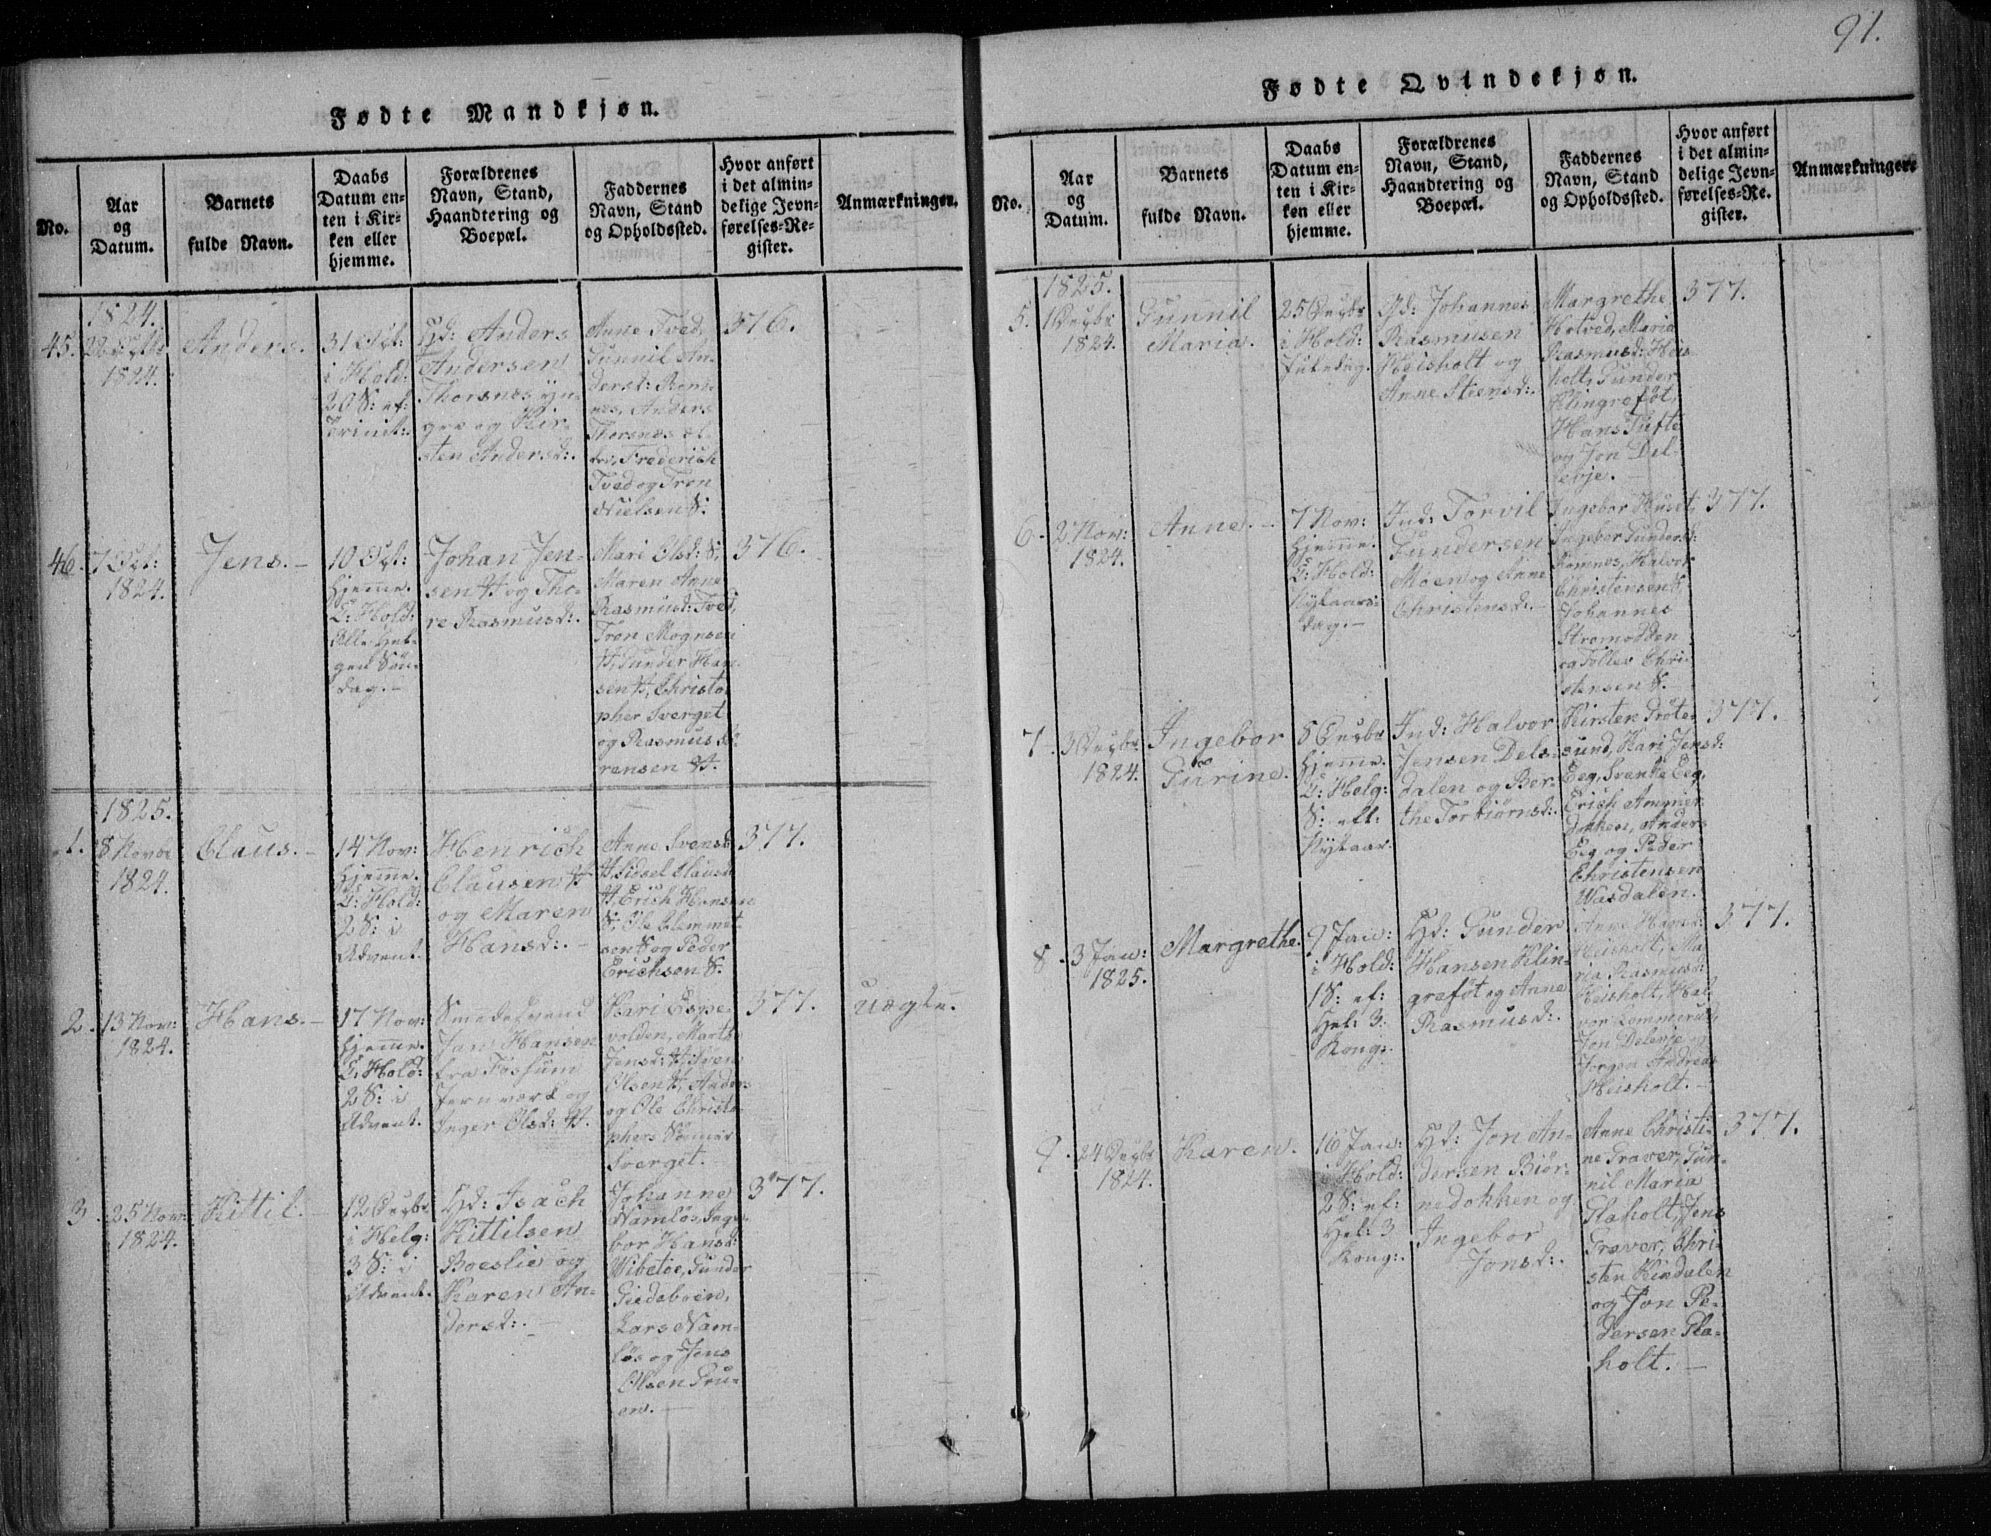 91.
Fødte Mandkjøn.
No.
Aar
og
Datum.
Barnets
fulde Navn.
Daabs
Datum en-
ten i Kir-
ken eller
hjemme.
Forældrenes
Navn, Stand,
Haandtering og
Boepæl.
Faddernes
Navn, Stand
og Opholdssted.
Hvor anført
i det almin-
delige Jevn-
førelses-Re-
gister.
Anmærkninger.
1824.
45.
1824.
Anders.
31 Oct:
i Hold:
20 S: ef:
Trinit:.
Gd: Anders
Andersen
Thorsnes yn-
gre og Kir-
sten Andersd:.
Anne Tved,
Gunnil An-
dersd: Rom-
nes, Anders
Thorsnes el-
dre, Frederich
Tved og Tron
Nielsen S.
376.
46.
7 Oct:
1824.
Jens.
10 Oct:
hjemme.
T: Hold:
Alle Hel-
gen Søn-
dag.
Johan Jen-
sen H og Tho-
re Rasmusd:.
Mari Olsd: S,
Maren Anne
Rasmusd: Tved,
Tron Mognsen
H, Gunder Han-
sen H, Christo-
pher Sverget
og Rasmus Sø-
rensen H.
376.
1825.
1.
8 Novbr
1824.
Claus.
14 Nov:
hjemme.
T: Hold:
2 S: i
Advent.
Henrich
Clausen H
og Maren
Hansd:.
Anne Svensd
H, Sidsel Clausd
H, Erich Hansen
S, Ole Clemmet-
sen S og Peder
Erichsen S.
377.
2.
13 Nov:
1824.
Hans.
17 Nov:
hjemme.
T: Hold:
2 S: i
Advent.
Smedesvend
Jan Hansen
fra Fossum
Jernværk og
Inger Olsd: H.
Kari Espe-
volden, Marth
Jensd: H, Sven
Olsen H, Anders
og Ole Christo-
phers Sønner
Sverget.
377.
uægte.
3.
25 Nov:
1824.
Kittil.
12 Decbr
i Helg:
3 S: i
Advent.
Gd: Isach
Kittilsen
Boeslie og
Karen An-
dersd:.
Johanne
Namløs, Inge-
bor Hansd:
Wibetoe, Gunder
Giedeboen,
Lars Nam-
løs og Jens
Olsen Gru-
en.
377.
Fødte Qvindekjøn.
No.
Aar
og
Datum.
Barnets
fulde Navn.
Daabs
Datum en-
ten i Kir-
ken eller
hjemme.
Forældrenes
Navn, Stand,
Haandtering og
Boepæl.
Faddernes
Navn, Stand
og Opholdssted.
Hvor anført
i det almin-
delige Jevn-
førelses-Re-
gister.
Anmærkninger.
1825.
5.
1 Decbr
1824.
Gunnil
Maria.
25 Decbr
i Hold:
Juledag.
Gd: Johannes
Rasmusen
Heisholt og
Anne Steensd:.
Margrethe
Holved, Maria
Rasmusd: Heis-
holt, Gunder
Klingrefot,
Hans Tufte
og Jon Del-
evje.
377.
6.
2 Nov:
1824.
Anne.
7 Nov:
hjemme.
T: Hold:
Nytaars-
dag.
Ind: Torvil
Gundersen
Moen og Anne
Christensd:.
Ingebor Huset,
Ingebor Gundersd:
Romnes, Halvor
Christensen S,
Johannes
Strømodden
og Tollev Chri-
stensen S.
377.
7.
3 Decbr
1824.
Ingebor
Gurine.
5 Decbr
hjemme.
T: Helg:
S: eft:
Nytaar.
Ind: Halvor
Jensen Dels-
dalen og Ber-
the Torbiørnsd:.
Kirsten Grøte-
sund, Kari Jensd:
Eeg, Svenke Eeg,
Erich Amgner-
dokken, Anders
Eeg og Peder
Christensen
Wasdalen.
377.
8.
3 Jan:
1825.
Margrethe.
9 Jan:
i Hold:
1 S: ef:
Hel: 3.
Kong:.
Gd: Gunder
Hansen Klin-
grefot og Anne
Rasmusd:.
Anne Hansd:
Heisholt, Ma-
ria Rasmusd:
Heisholt, Hal-
vor Kommerud,
Jon Delevje og
Jørgen Andreas
Heisholt.
377.
9.
24 Decbr
1824.
Karen.
16 Jan:
i Hold:
2 S: ef:
Hel: 3
Kong:.
Gd: Jon An-
dersen Biør-
nedokken og
Ingebor
Jonsd:.
Anne Christi-
ne Graver, Gun-
nil Maria
Glaholt, Jens
Graver, Chri-
sten Kisdalen
og Jon Pe-
dersen Gla-
holt.
377.